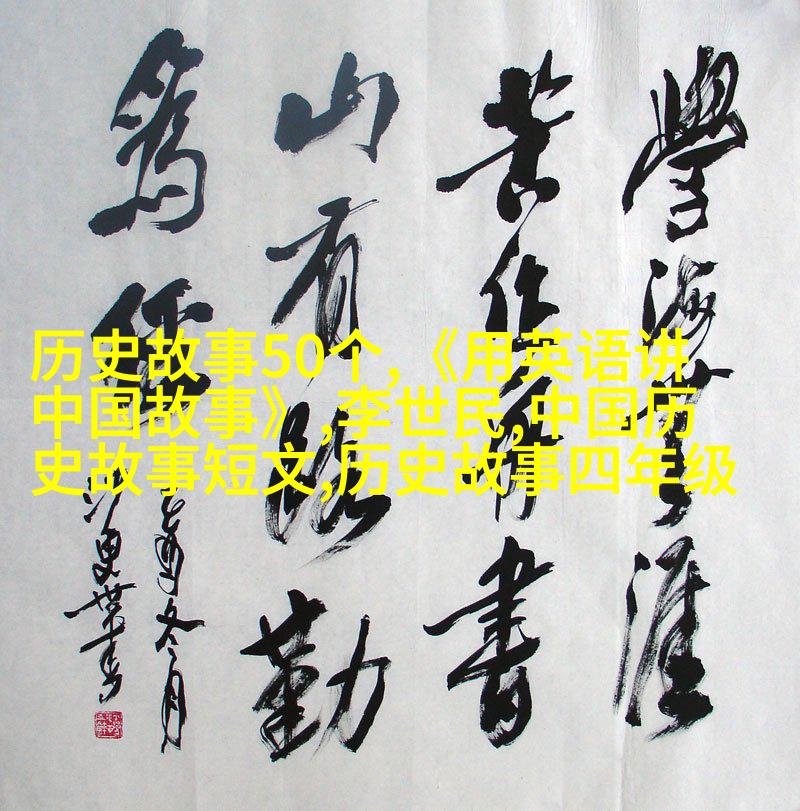 历史故事50个,《用英语讲
中国故事》,李世民,中国历
史故事短文,历史故事四年级
學海無涯
苦作舟書
山有路勤
為徑
冬月